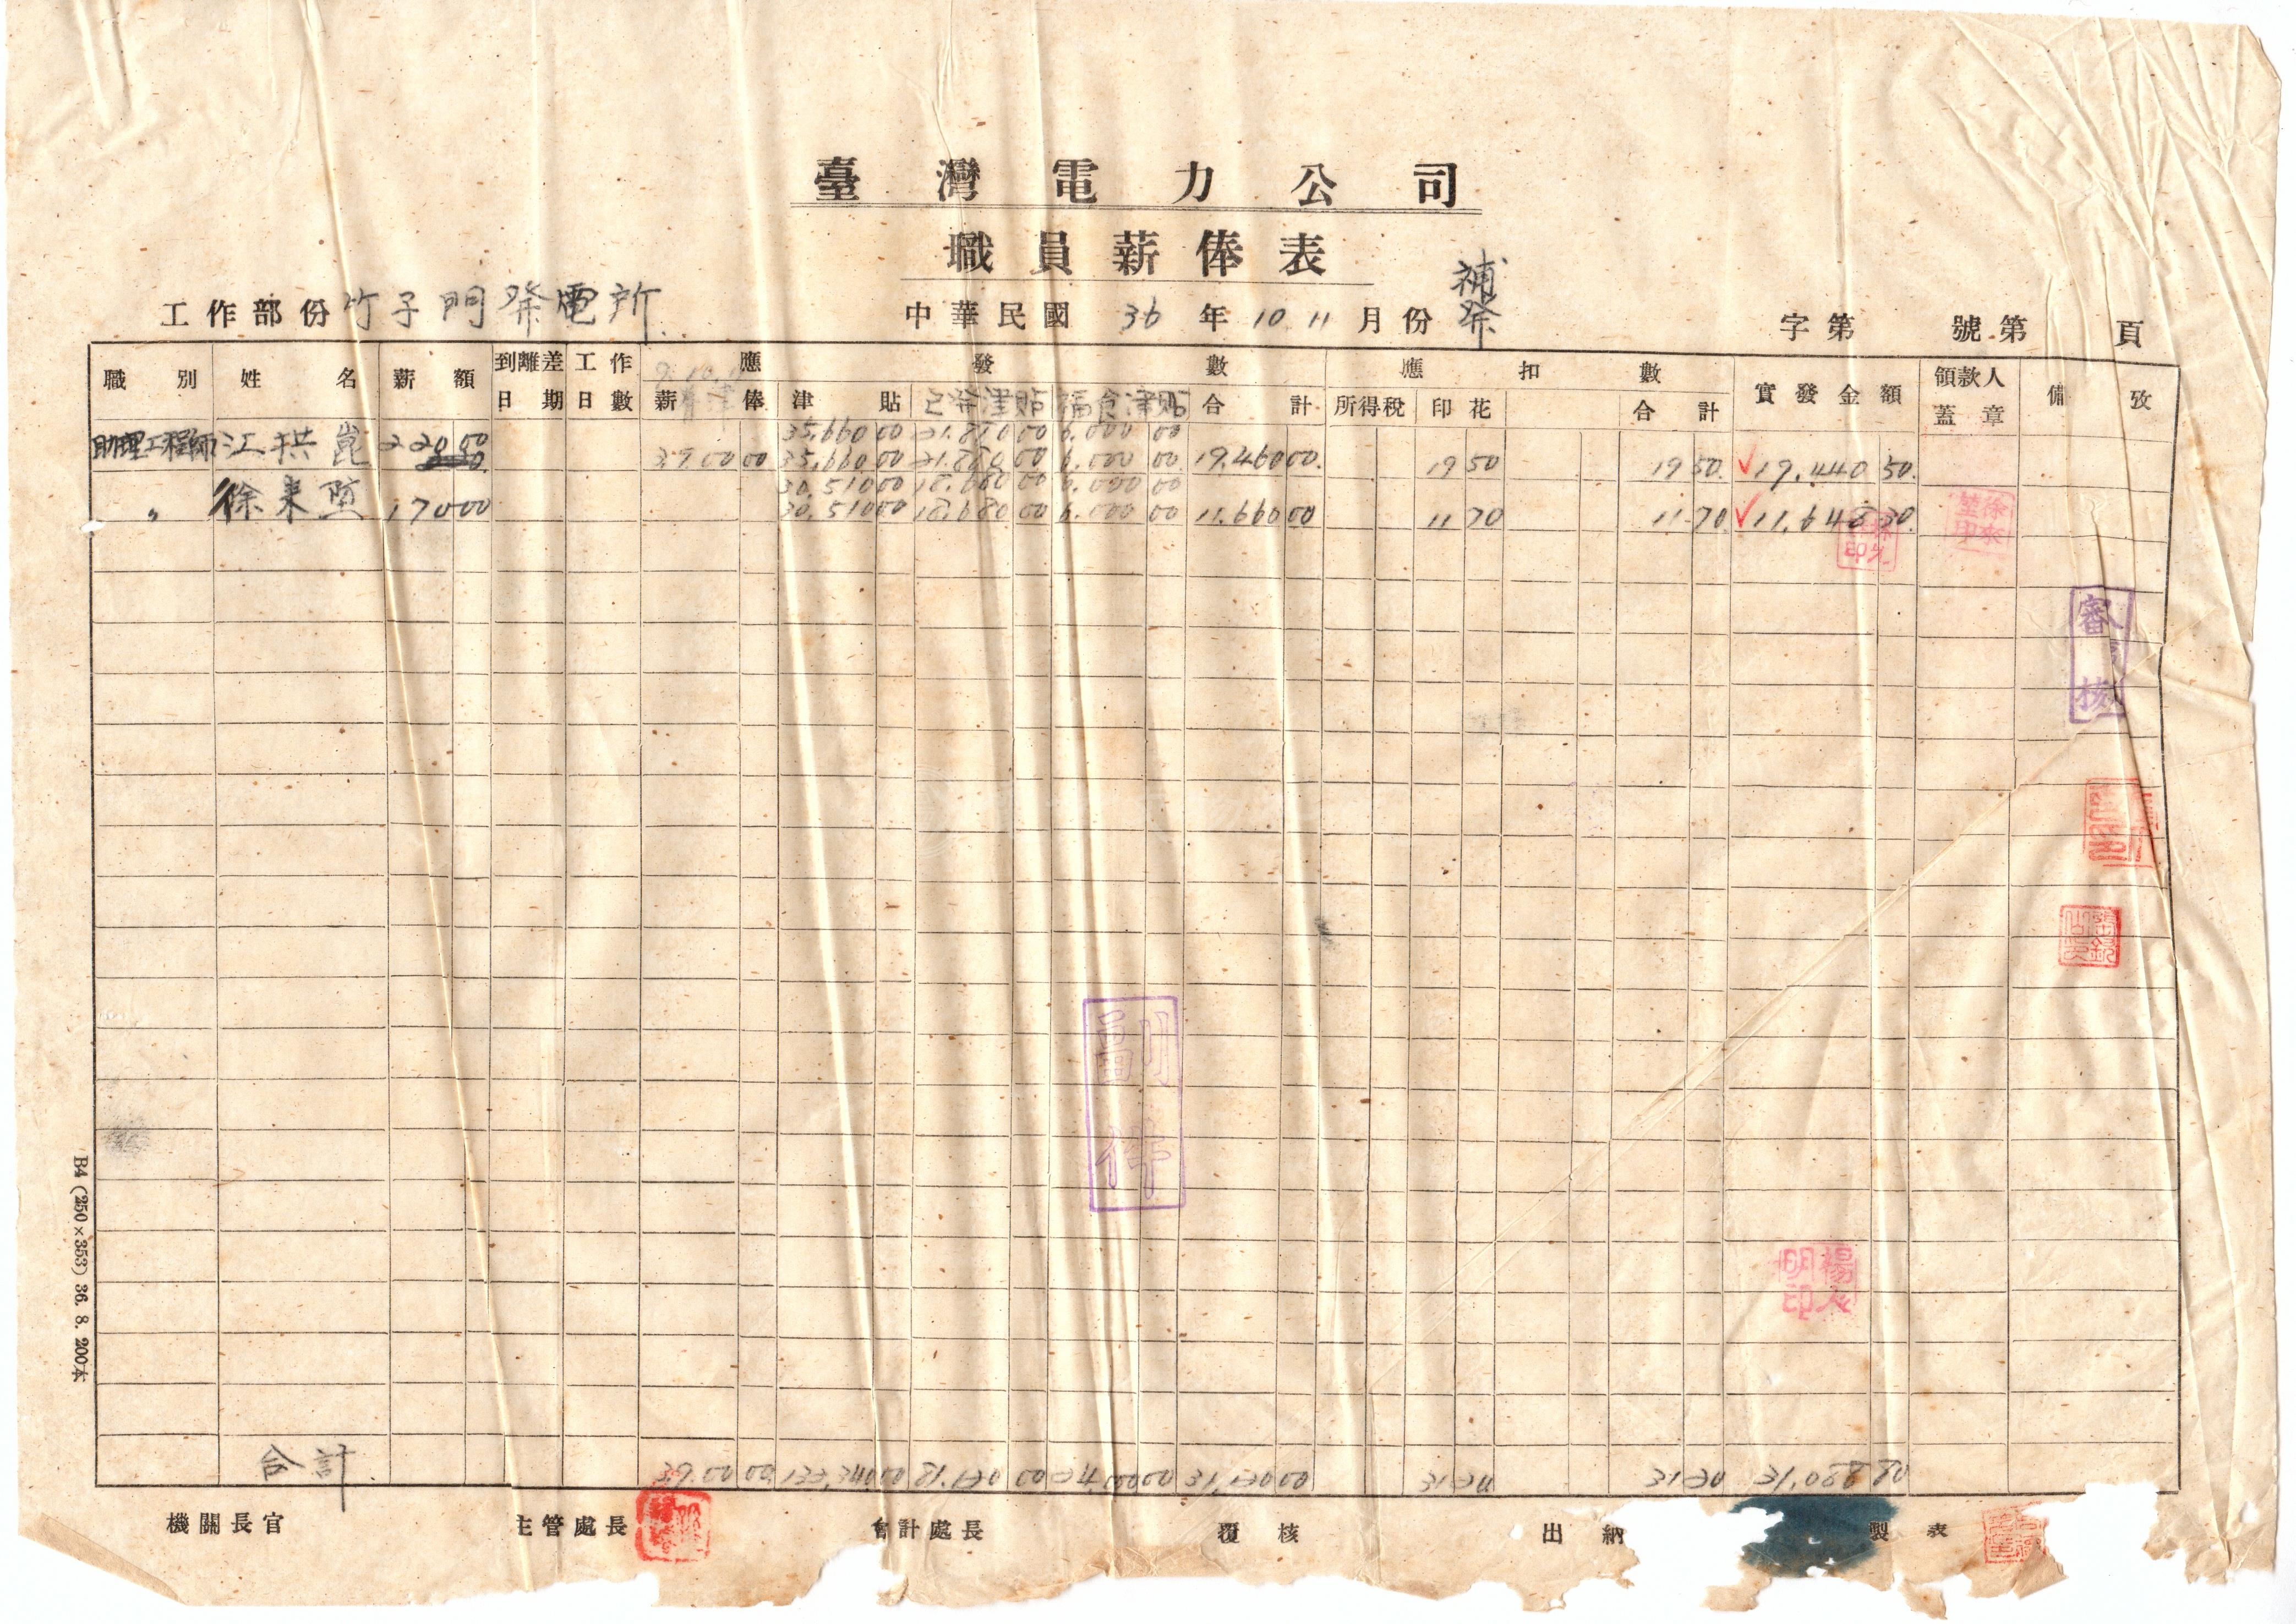 臺灣電力公司
職員薪俸表
工作部份 竹子門発電所 中華民國 36 年 10 11 月份 補発 字第 號第 頁
職別 姓名 薪額 到離差日期 工作日數 應發數 應扣數 實發金額 領款人蓋章 備攷
薪俸 津貼 已発津貼 膳食津貼 合計 所得稅 印花 合計
35,660 00 21,870 00 6,000 00
助理工程師 江拱崑 220 00 39 00 00 35,660 00 6,000 00 19,460 00 19 50 19 50 19,440 50
30,510 00 18,680 00 6,000 00
〃 徐来 170 00 30,510 00 18,680 00 6,000 00 11,660 00 11 70 11 70
審核
副件
合計 39 00 00 31 20 31 20 31,088 80
機關長官 主管處長 會計處長 覆核 出納 製表
B4 (250×353) 36. 8. 200本